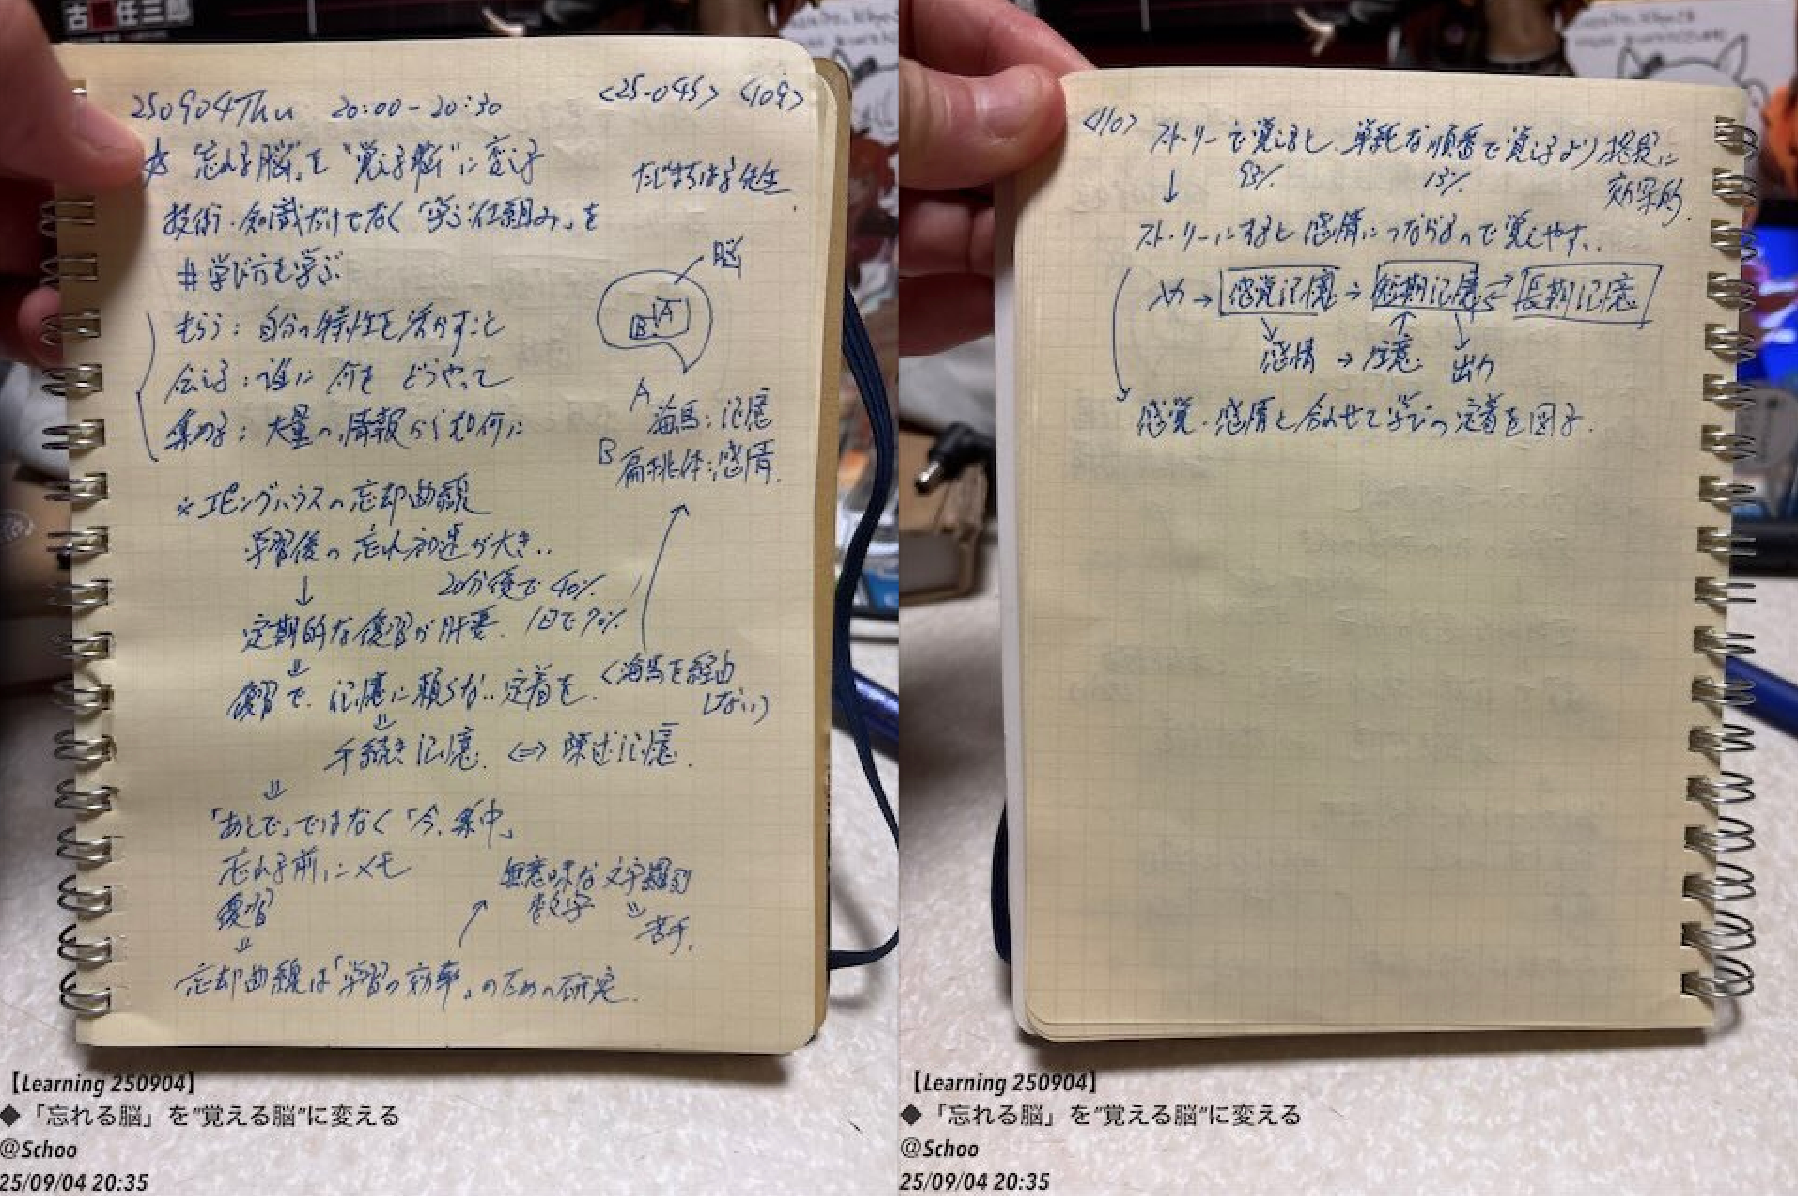 古 任三郎
250904Thu 20:00-20:30 <25-045> <109>
☆ "忘れる脳"を"覚える脳"に変える
たじまちはる先生
技術・知識だけでなく「学ぶ仕組み」を
#学び方を学ぶ
脳
A
B
もらう:自分の特性を活かすこと
伝える:誰に 何を どうやって
集める:大量の情報から如何に
A 海馬:記憶
B 扁桃体:感情
※エビングハウスの忘却曲線
学習後の忘れ初速が大きい
↓ 20分後で40%
定期的な復習が肝要. 1日で70%
⇓
復習で、記憶に頼らない定着を. <海馬を経由しない>
⇓
手続き記憶. ⇔ 陳述記憶.
⇓
「あとで」ではなく「今、集中」
忘れる前にメモ
復習
無意味な文字羅列
数字 ⇒ 苦手.
⇓
忘却曲線は「学習の効率」のための研究.
【Learning 250904】
◆「忘れる脳」を"覚える脳"に変える
@Schoo
25/09/04 20:35
<110> ストーリーで覚えると、単純な順番で覚えるより格段に効果的.
93% 13%
↓
ストーリーにすると感情につながるので覚えやすい.
入力→感覚記憶→短期記憶⇄長期記憶
感情→注意 出力
感覚・感情と合わせて学びの定着を図る.
【Learning 250904】
◆「忘れる脳」を"覚える脳"に変える
@Schoo
25/09/04 20:35